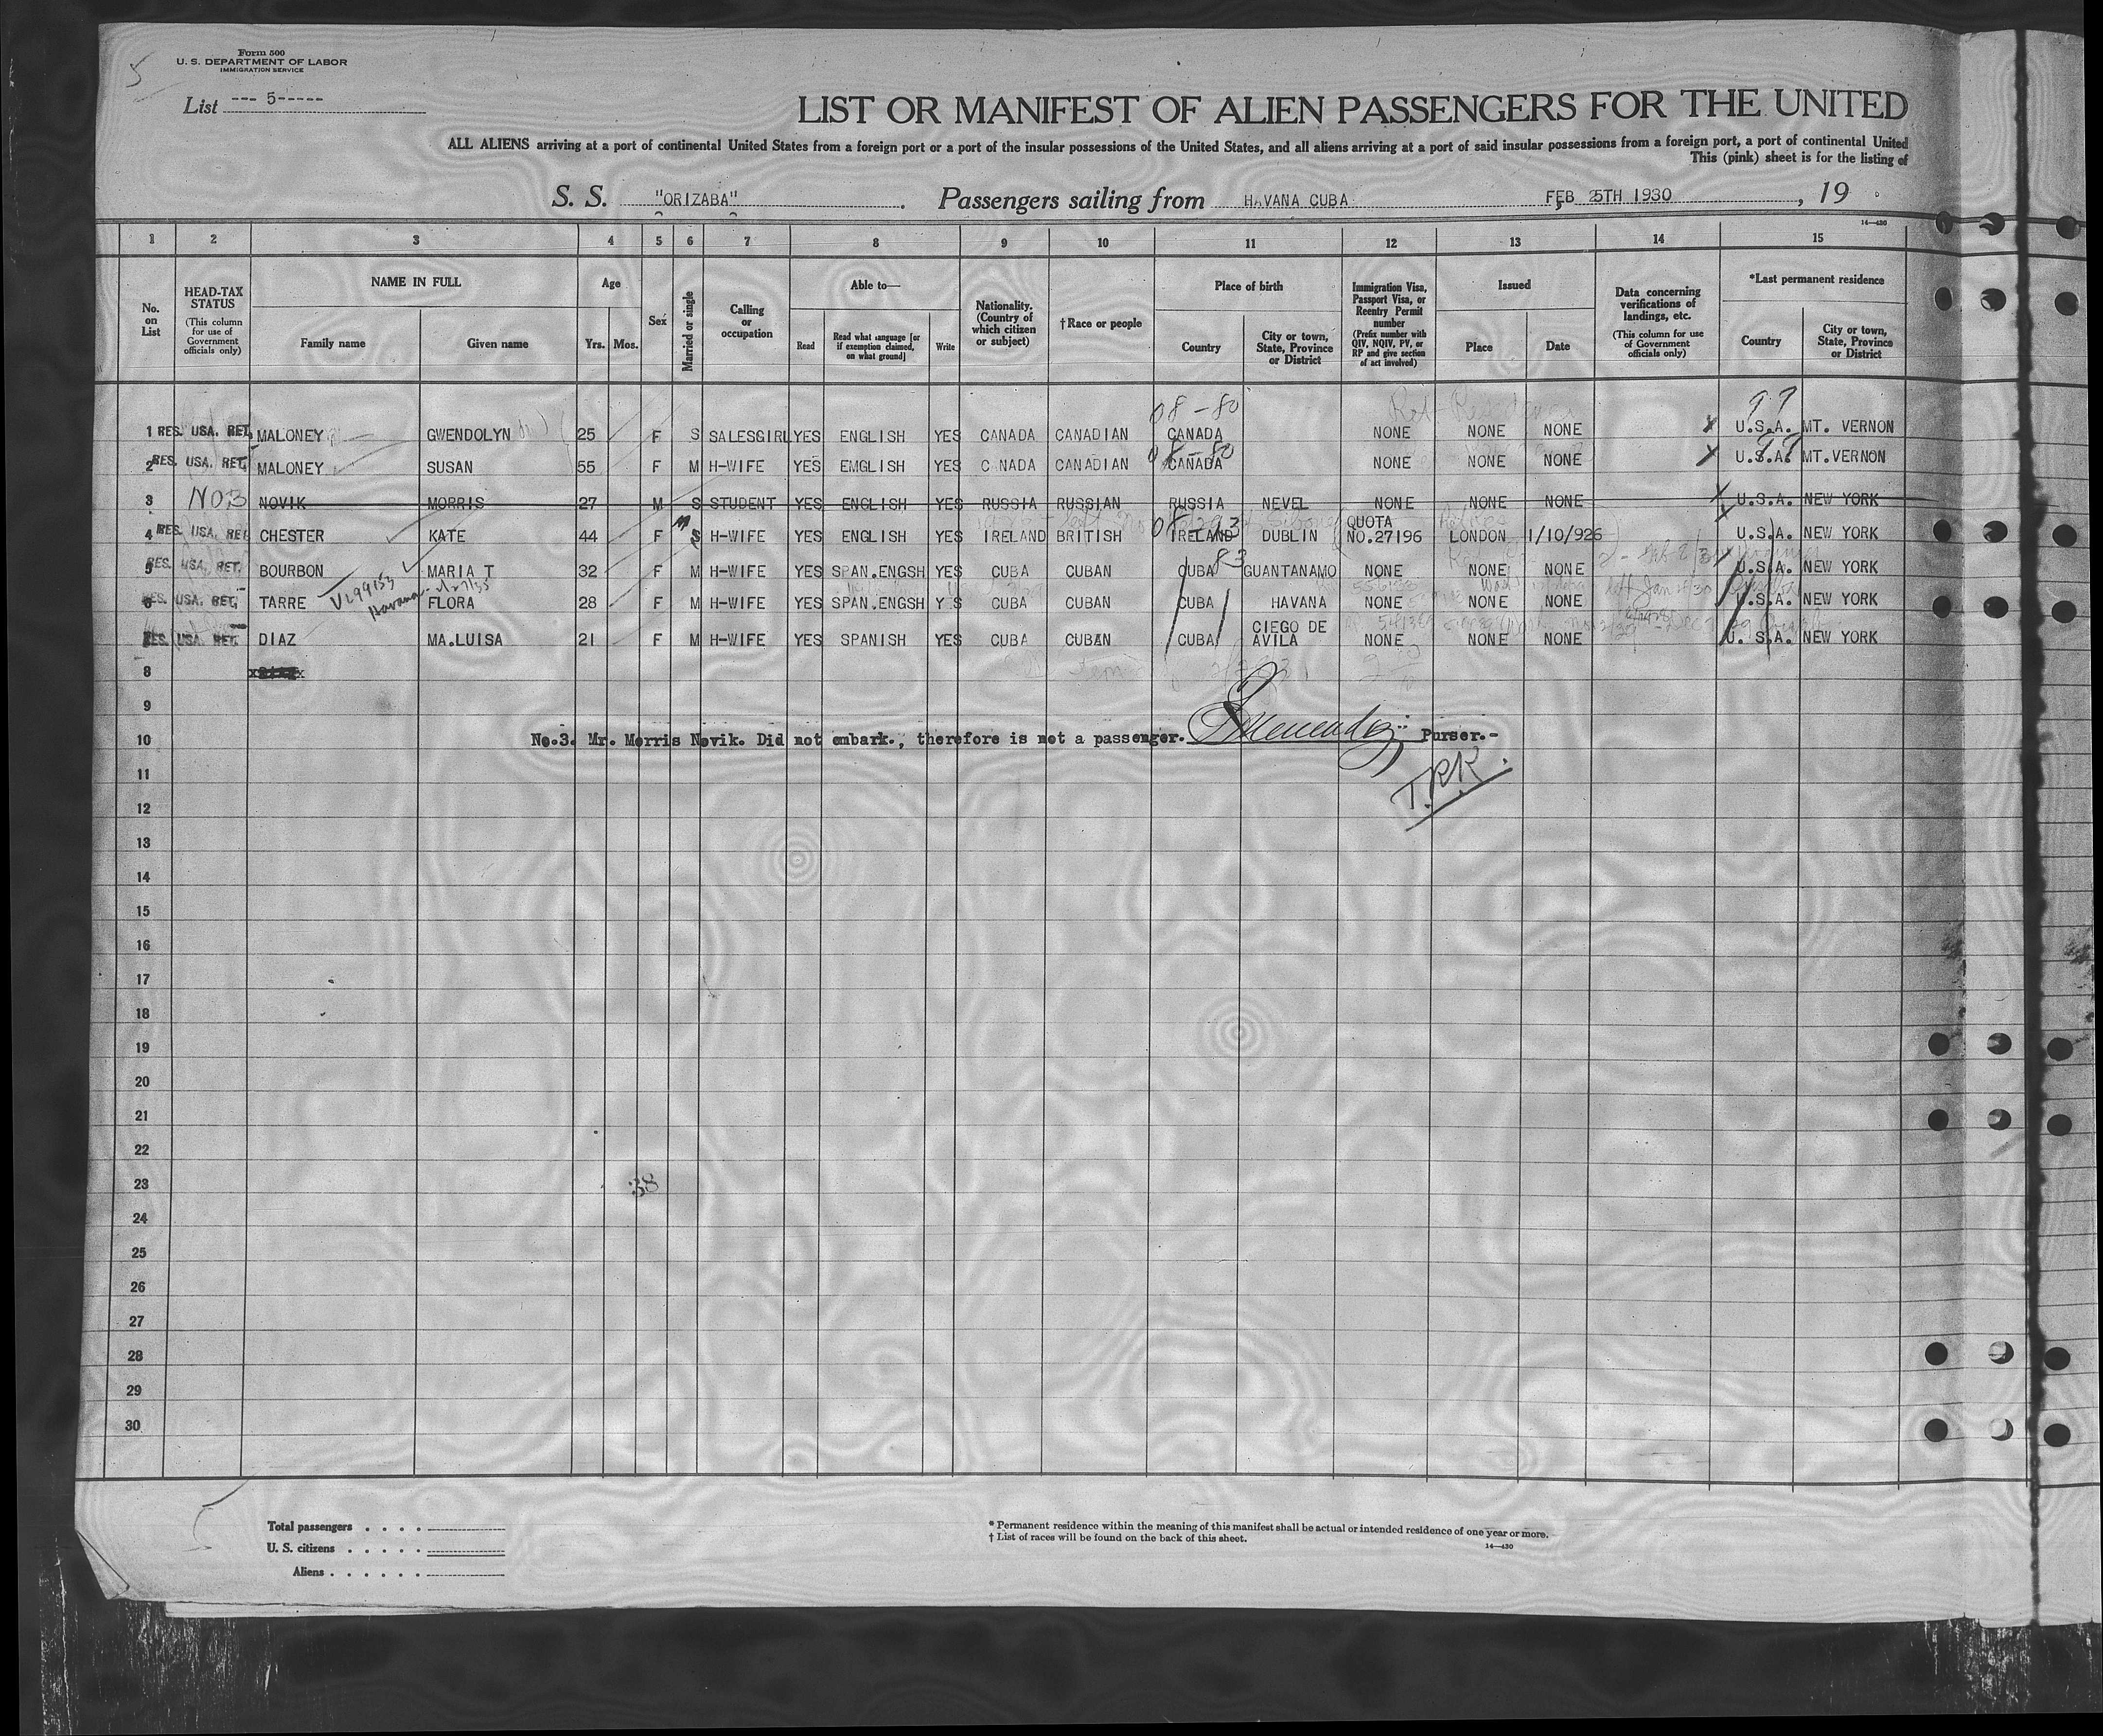 5
Form 500
U. S. DEPARTMENT OF LABOR
IMMIGRATION SERVICE
List --- 5-----
LIST OR MANIFEST OF ALIEN PASSENGERS FOR THE UNITED
ALL ALIENS arriving at a port of continental United States from a foreign port or a port of the insular possessions of the United States, and all aliens arriving at a port of said insular possessions from a foreign port, a port of continental United
This (pink) sheet is for the listing of
S. S. "ORIZABA" . Passengers sailing from HAVANA CUBA FEB 25TH 1930 , 19
14—430
1 2 3 4 5 6 7 8 9 10 11 12 13 14 15
No. on List
HEAD-TAX STATUS (This column for use of Government officials only)
NAME IN FULL
Family name Given name
Age
Yrs. Mos.
Sex
Married or single
Calling or occupation
Able to—
Read Read what language [or if exemption claimed, on what ground] Write
Nationality. (Country of which citizen or subject)
†Race or people
Place of birth
Country City or town, State, Province or District
Immigration Visa, Passport Visa, or Reentry Permit number (Prefix number with QIV, NQIV, PV, or RP and give section of act involved)
Issued
Place Date
Data concerning verifications of landings, etc. (This column for use of Government officials only)
*Last permanent residence
Country City or town, State, Province or District
08-80 99
1 RES. USA. RET. MALONEY GWENDOLYN 25 F S SALESGIRL YES ENGLISH YES CANADA CANADIAN CANADA NONE NONE NONE x U.S.A. MT. VERNON
08-80 99
2 RES. USA. RET. MALONEY SUSAN 55 F M H-WIFE YES EMGLISH YES CANADA CANADIAN CANADA NONE NONE NONE x U.S.A. MT.VERNON
3 NOB NOVIK MORRIS 27 M S STUDENT YES ENGLISH YES RUSSIA RUSSIAN RUSSIA NEVEL NONE NONE NONE x U.S.A. NEW YORK
4 RES. USA. RET CHESTER KATE 44 F M S H-WIFE YES ENGLISH YES IRELAND BRITISH IRELAND DUBLIN QUOTA NO.27196 LONDON 1/10/926 U.S.A. NEW YORK
83
5 RES. USA. RET. BOURBON MARIA T 32 F M H-WIFE YES SPAN.ENGSH YES CUBA CUBAN CUBA GUANTANAMO NONE NONE NONE U.S.A. NEW YORK
6 RES. USA. RET. TARRE Havana FLORA 28 F M H-WIFE YES SPAN.ENGSH Y S CUBA CUBAN CUBA HAVANA NONE NONE NONE U.S.A. NEW YORK
7 RES. USA. RET. DIAZ MA.LUISA 21 F M H-WIFE YES SPANISH YES CUBA CUBAN CUBA CIEGO DE AVILA NONE NONE NONE U. S.A. NEW YORK
8
9
10 No.3. Mr. Morris Novik. Did not embark., therefore is not a passenger. Purser.-
T.RR.
11
12
13
14
15
16
17
18
19
20
21
22
23 38
24
25
26
27
28
29
30
Total passengers . . . .
U. S. citizens . . . . .
Aliens . . . . . .
* Permanent residence within the meaning of this manifest shall be actual or intended residence of one year or more.
† List of races will be found on the back of this sheet.
14—430